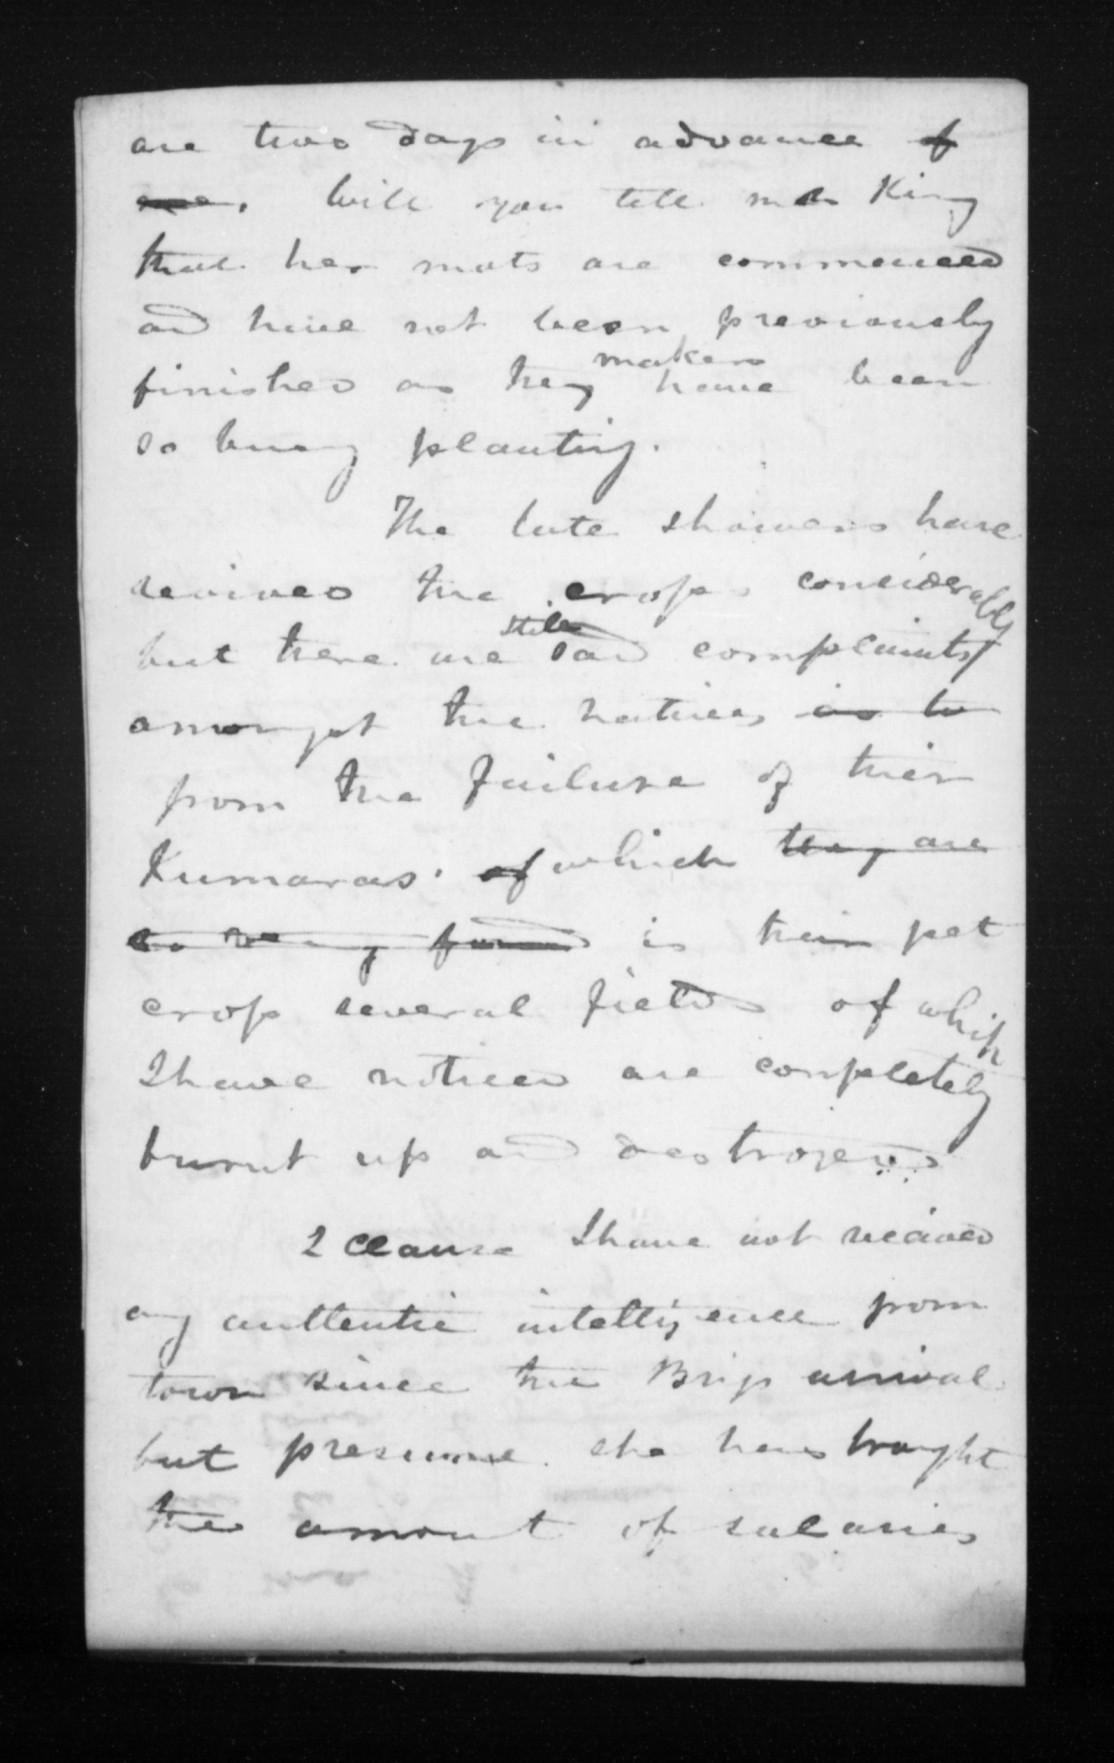 are two days in advance of
me. Will you tell Mrs King
that her mats are commenced
and have not been previously
makers
finished as they have been
so busy planting.
The late showers have
revived the crops considerably
still
but there are sad complaints
amongst the natives as to
from the failure of their
Kumaras. of which they are
so very fond is their pet
crop several fields of which
I have noticed are completely
burnt up and destroyed.
2 clause I have not recived
any authentic intelligence from
town since the Brigs arrival
but presume she has brought
the amount of salaries